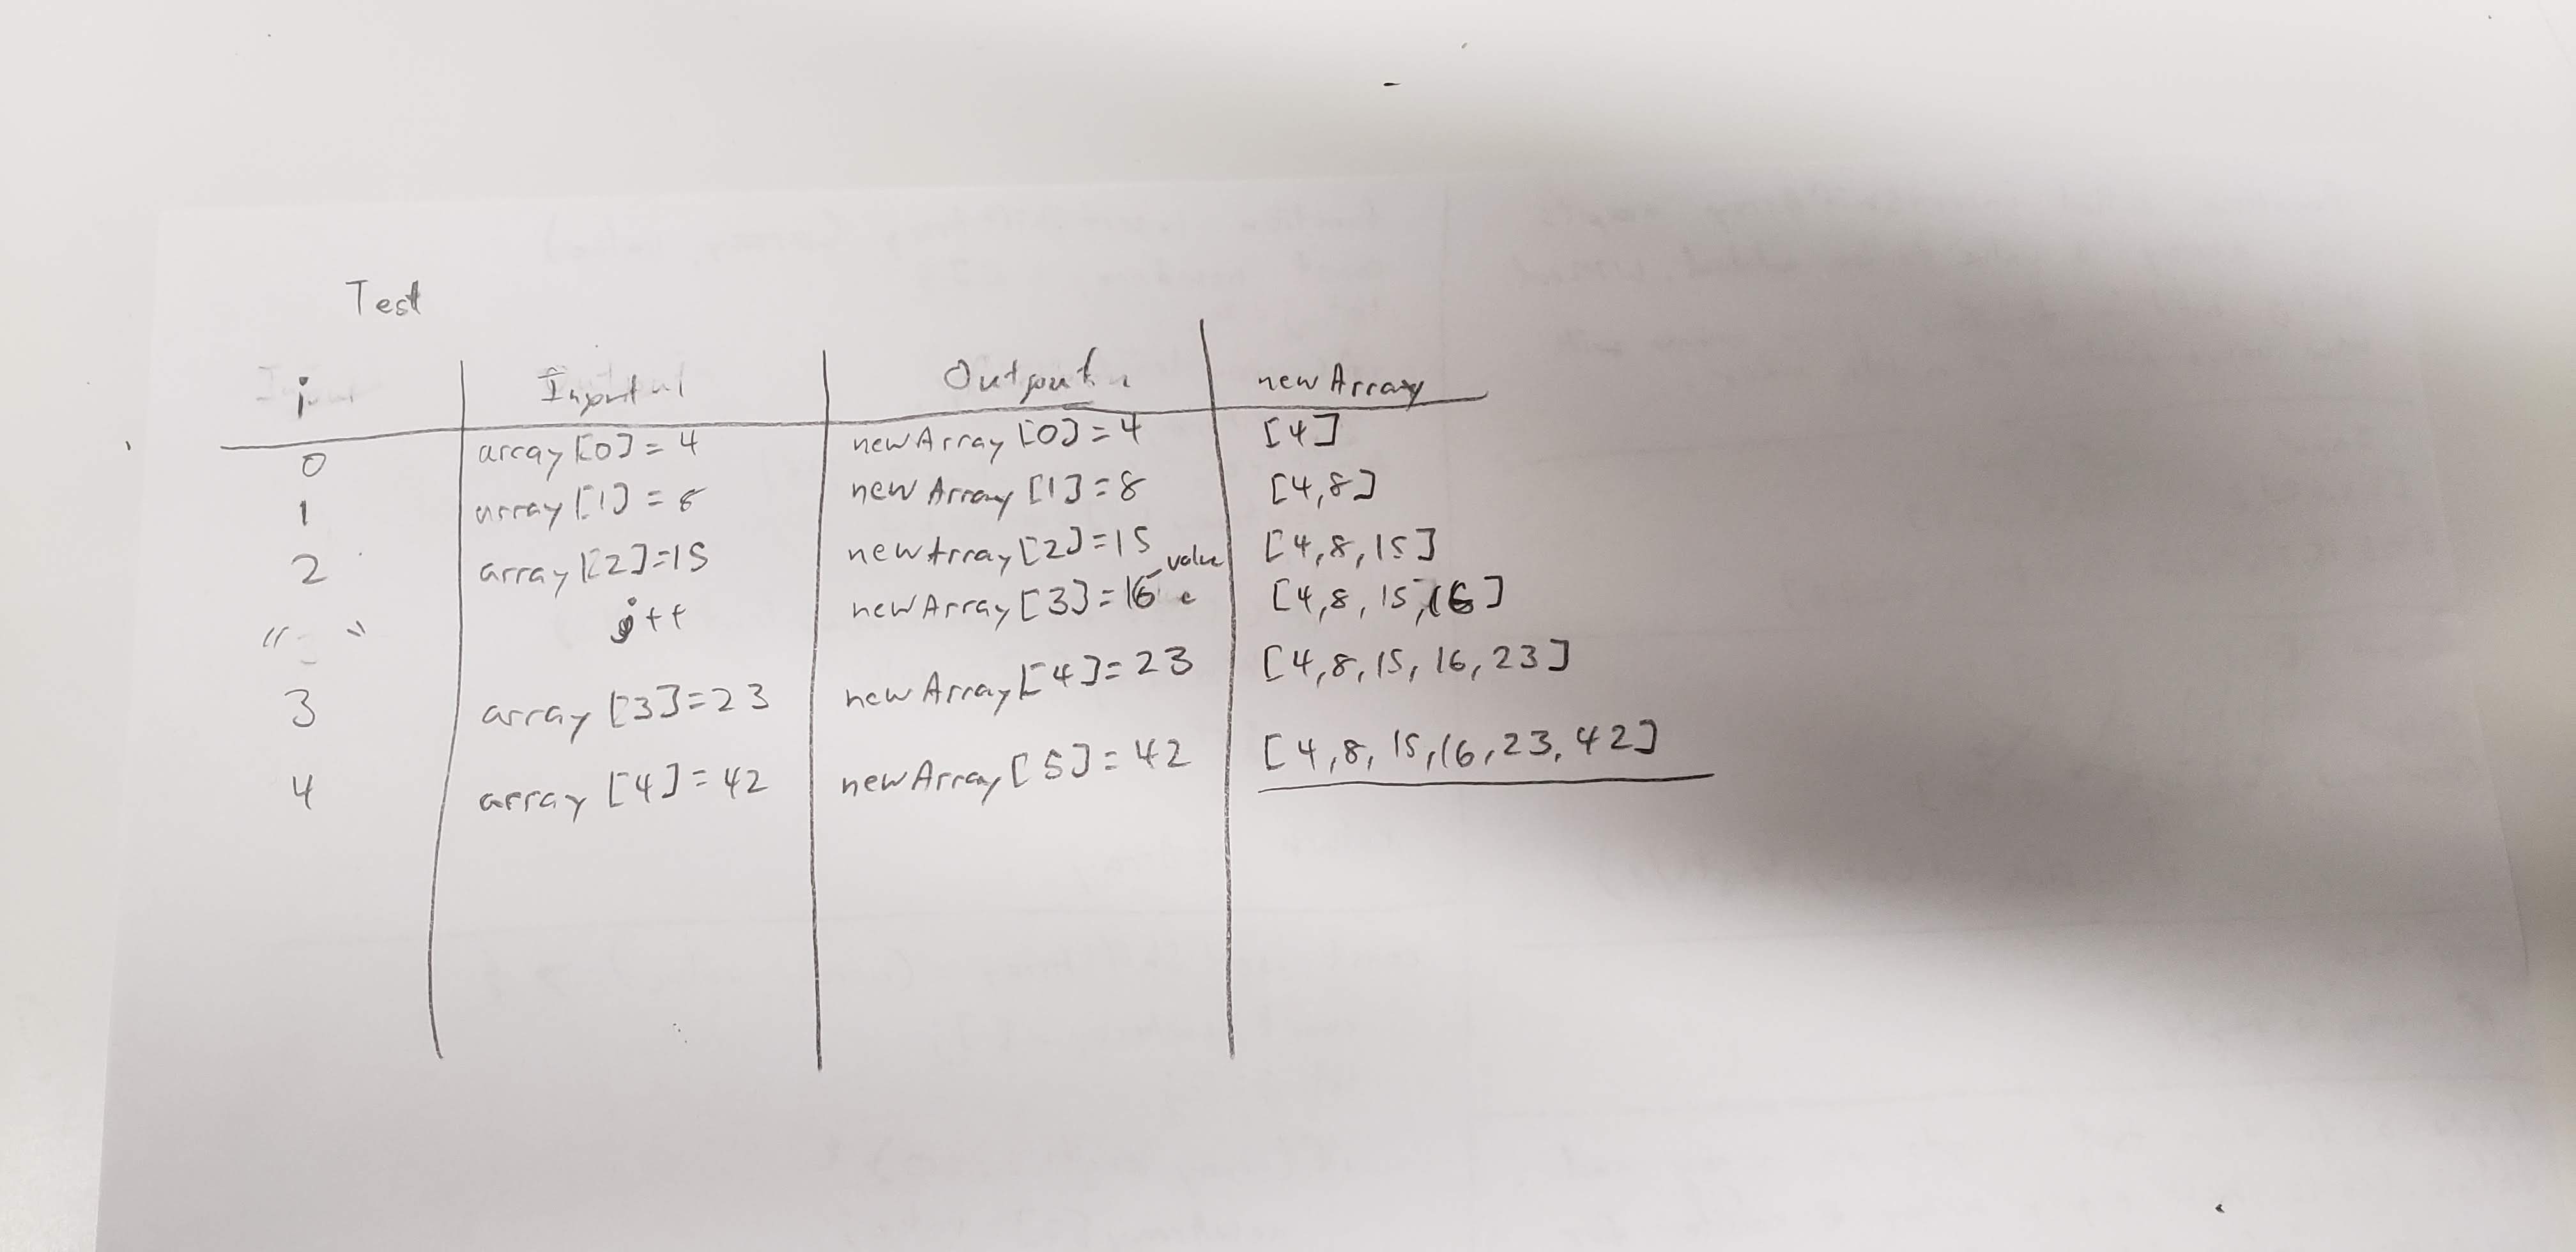 Test
i Input Output newArray
0 array[0]=4 newArray[0]=4 [4]
1 array[1]=8 newArray[1]=8 [4,8]
2 array[2]=15 newArray[2]=15 [4,8,15]
value
" " j++ newArray[3]=16 [4,8,15,16]
3 array[3]=23 newArray[4]=23 [4,8,15,16,23]
4 array[4]=42 newArray[5]=42 [4,8,15,16,23,42]